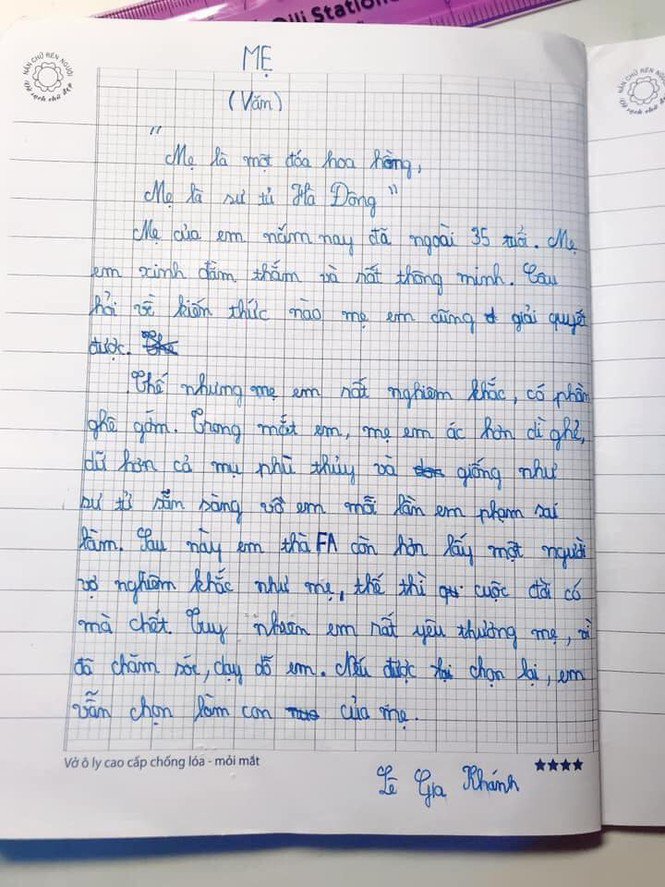 Dili Stationer
NẮN CHỮ RÈN NGƯỜI
Vở sạch chữ đẹp
NẮN CHỮ RÈN NGƯỜI
MẸ
(Văn)
"
Mẹ là một đóa hoa hồng,
Mẹ là sư tử Hà Đông"
Mẹ của em năm nay đã ngoài 35 tuổi. Mẹ
em xinh đằm thắm và rất thông minh. Câu
hỏi về kiến thức nào mẹ em cũng giải quyết
được.
Thế nhưng mẹ em rất nghiêm khắc, có phần
ghê gớm. Trong mắt em, mẹ em ác hơn dì ghẻ,
dữ hơn cả mụ phù thủy và giống như
sư tử sẵn sàng vồ em mỗi lần em phạm sai
lầm. Sau này em thà FA còn hơn lấy một người
vợ nghiêm khắc như mẹ, thế thì cuộc đời có
mà chết. Tuy nhiên em rất yêu thương mẹ, vì
đã chăm sóc, dạy dỗ em. Nếu được chọn lại, em
vẫn chọn làm con của mẹ.
Vở ô ly cao cấp chống lóa - mỏi mắt
★★★★
Lê Gia Khánh